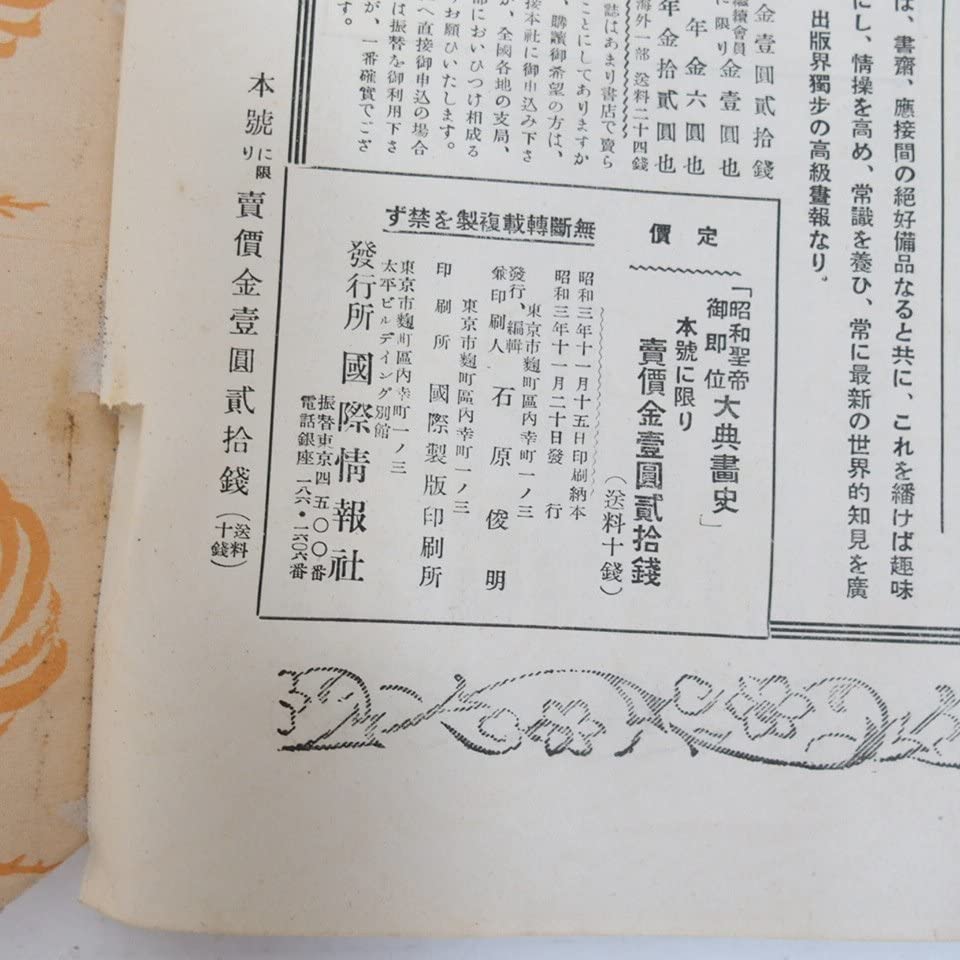 は、書齋、應接間の絶好備品なると共に、これを繙けば趣味
にし、情操を高め、常識を養ひ、常に最新の世界的知見を廣
出版界獨步の高級畫報なり。
金壹圓貳拾錢
繼續會員
に限り金壹圓也
年金六圓也
年金拾貳圓也
海外一部 送料二十四錢
誌はあまり書店で賣ら
ことにしてありますか
、購讀御希望の方は、
接本社に御申込み下さ
が、全國各地の支局、
部においひつけ相成る
りお願ひいたします。
へ直接御申込の場合
は振替を御利用下さ
が、一番確實でござ
す。
定價
「昭和聖帝
御即位大典畫史」
本號に限り
賣價金壹圓貳拾錢
(送料十錢)
無斷轉載複製を禁ず
昭和三年十一月十五日印刷納本
昭和三年十一月二十日發行
東京市麴町區內幸町一ノ三
發行、編輯
兼印刷人 石原俊明
東京市麴町區內幸町一ノ三
印刷所 國際製版印刷所
東京市麴町區內幸町一ノ三
太平ビルディング別館
發行所 國際情報社
振替東京四五〇〇番
電話銀座一八六・一六〇六番
本號に限り 賣價金壹圓貳拾錢(送料十錢)